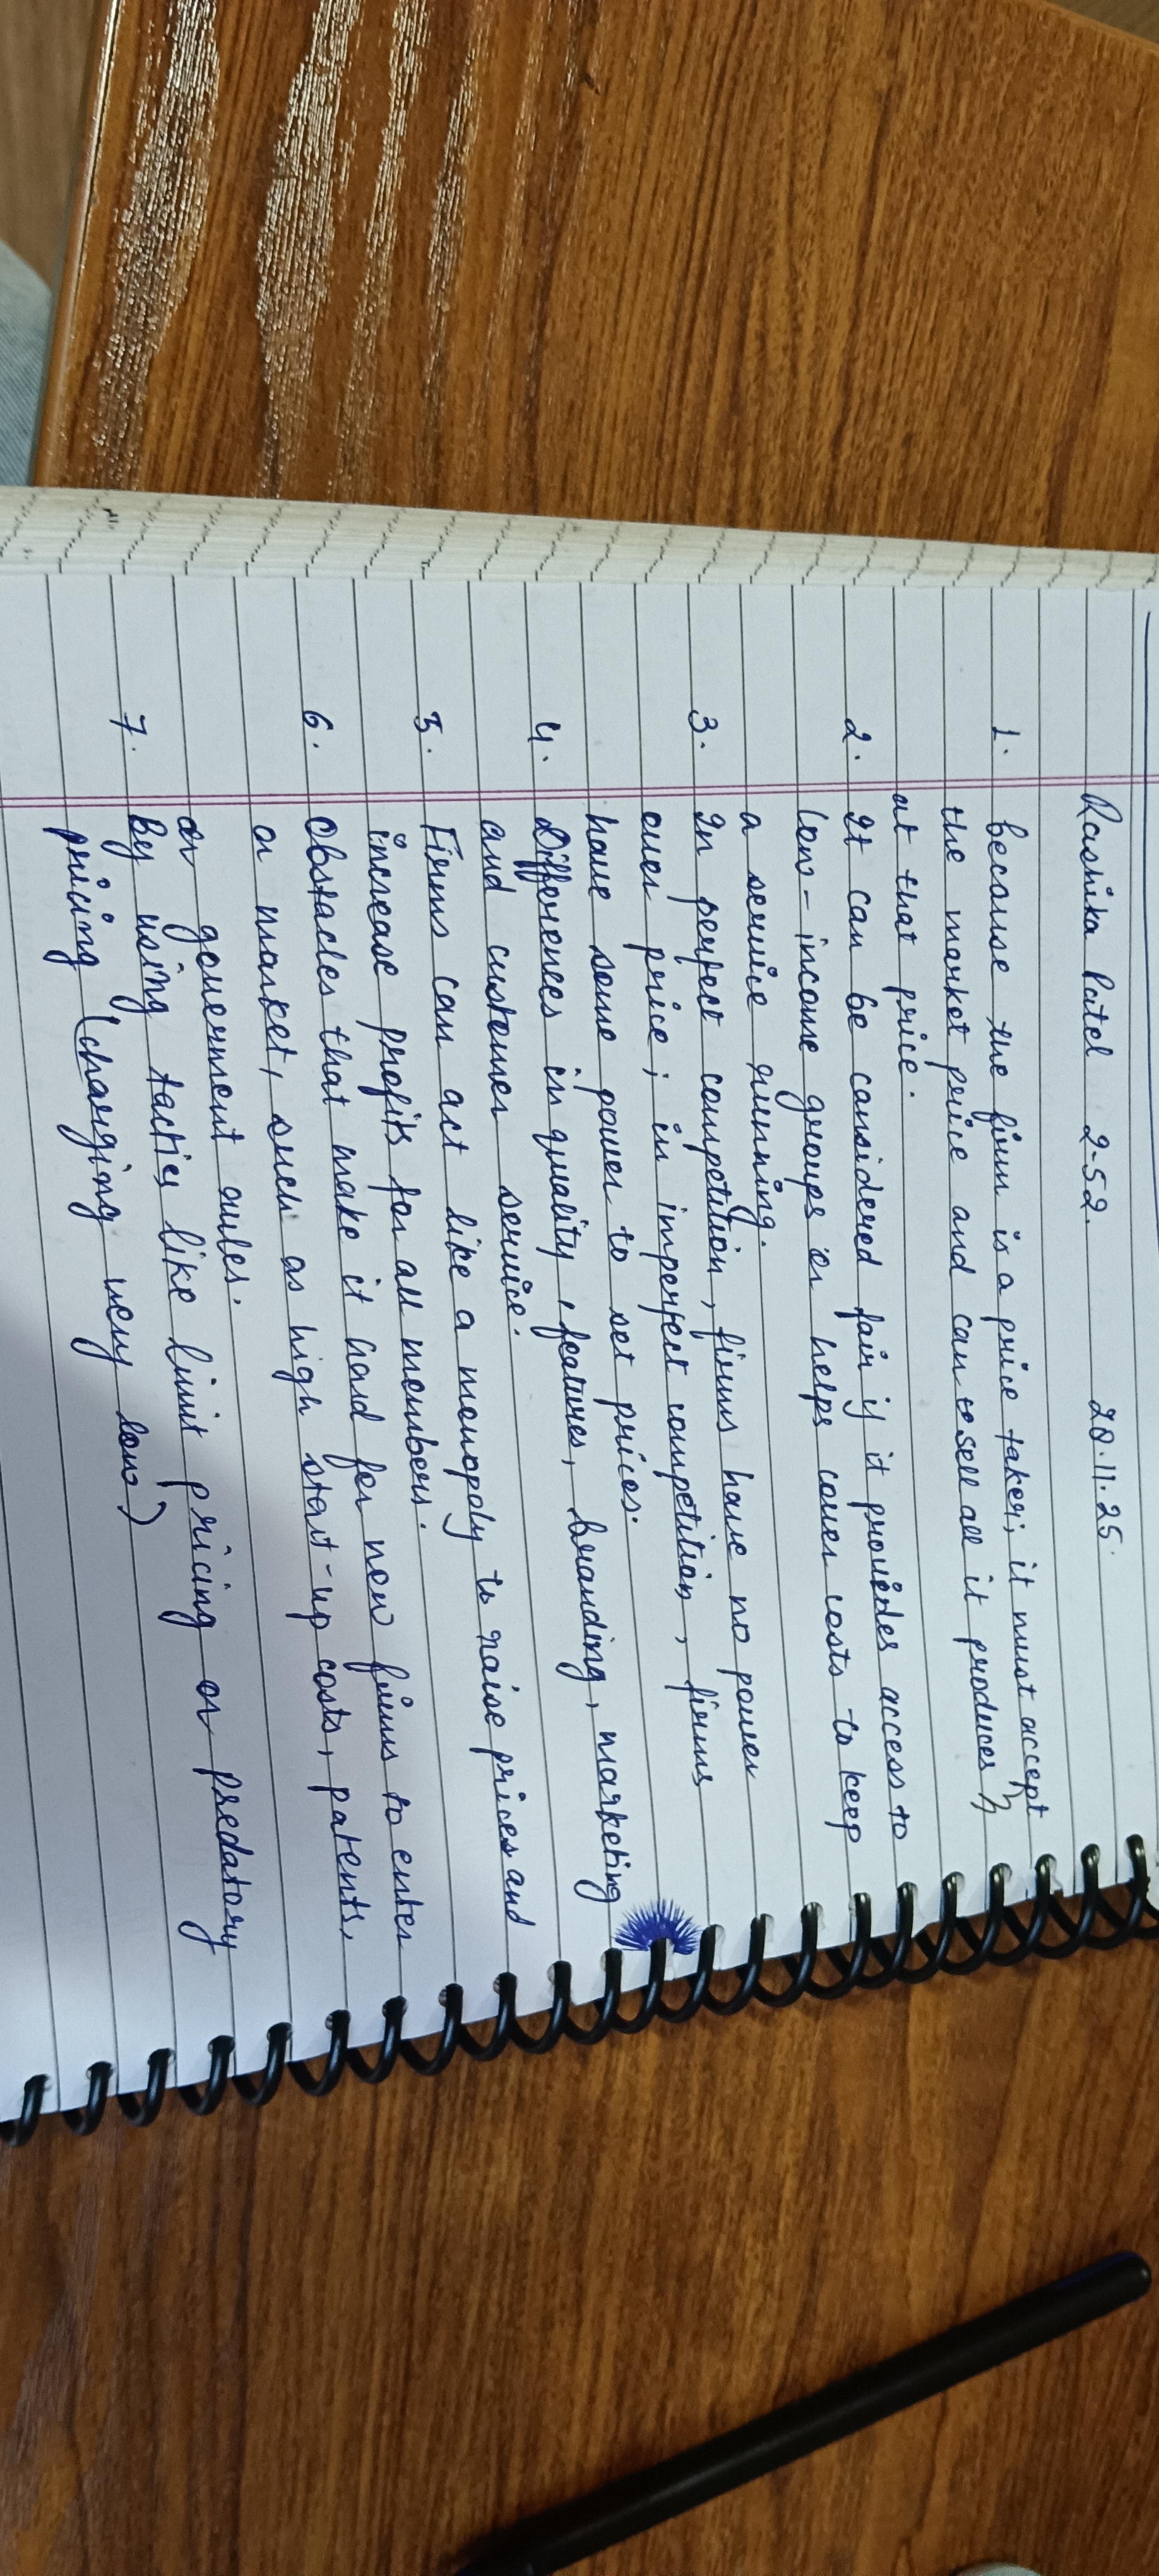 Rashika Patel 2-52. 20.11.25.
1. because the firm is a price taker; it must accept
the market price and can sell all it produces
at that price.
2. It can be considered fair if it provides access to
low-income groups or helps cover costs to keep
a service running.
3. In perfect competition, firms have no power
over price; in imperfect competition, firms
have some power to set prices.
4. Differences in quality, features, branding, marketing
and customer service.
5. Firms can act like a monopoly to raise prices and
increase profits for all members.
6. Obstacles that make it hard for new firms to enter
a market, such as high start-up costs, patents,
or government rules.
7. By using tactics like limit pricing or predatory
pricing (charging very low)